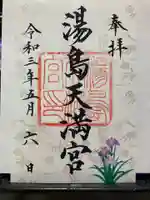 奉拝
湯島天満宮
令和三年五月六日